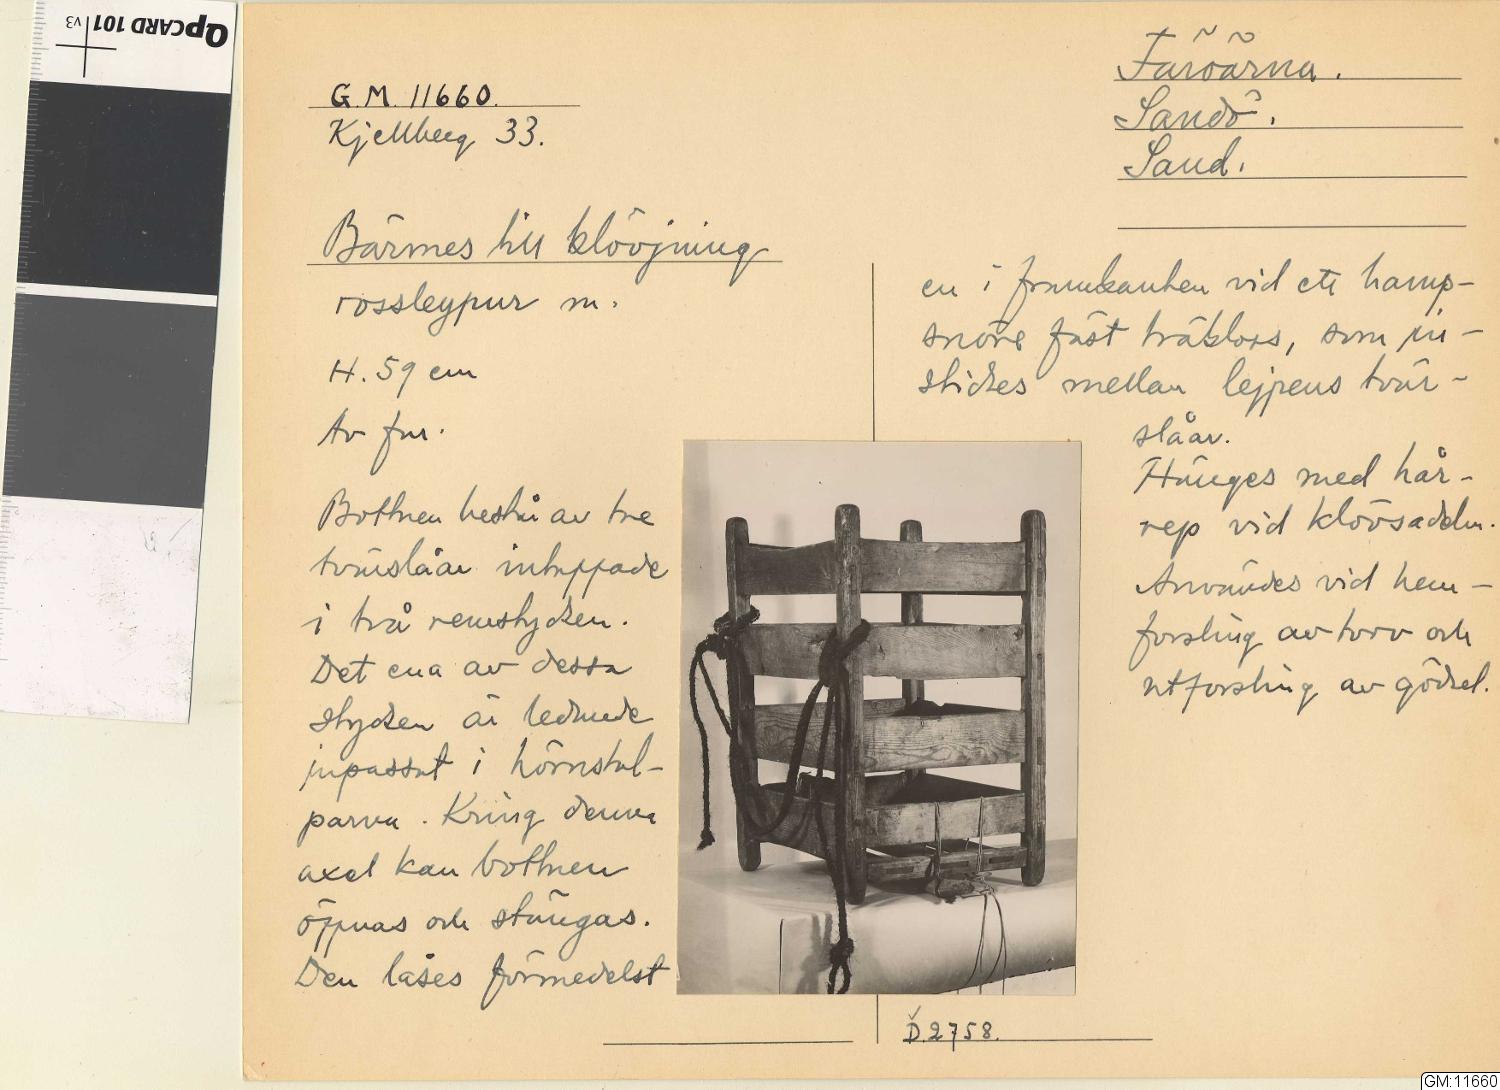 QPCARD 101 v3
G.M. 11660.
Kjellberg 33.
Färöarna.
Sandö.
Sand.
Bärmes till klövjning
rossleypur m.
H. 59 cm
Av fur.
Bottnen består av tre
tvärslåar intappade
i två remstycken.
Det ena av dessa
stycken är
inpassat i hörnstol-
parna. Kring denna
axel kan bottnen
öppnas och stängas.
Den låses förmedelst
en i framkanten vid ett hamp-
snöre fäst träkloss, som in-
stickes mellan lejpens tvär-
slåar.
Hänges med hår-
rep vid klövsadeln.
Användes vid hem-
forsling av torv och
utforsling av gödsel.
D.2758.
GM:11660